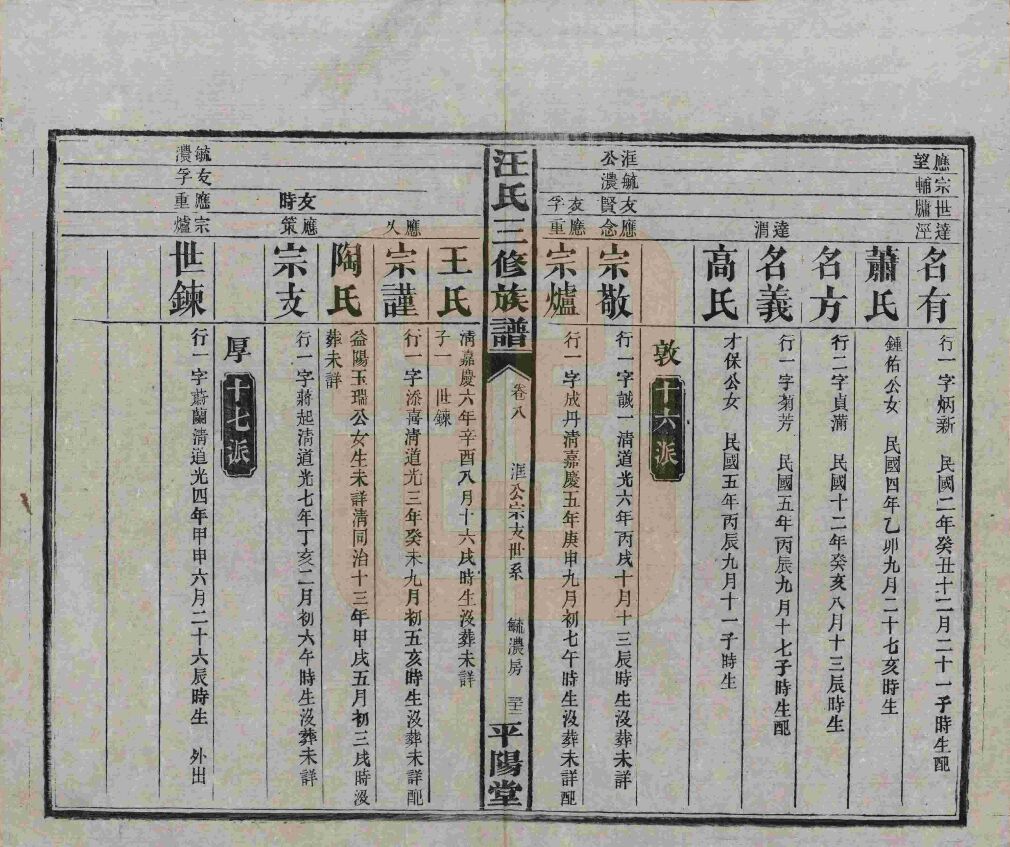 應宗世達
望輔牗涇
名有
行一字炳新 民國二年癸丑十二月二十一子時生配
蕭氏
鍾佑公女 民國四年乙卯九月二十七亥時生
名方
行二字貞滿 民國十二年癸亥八月十三辰時生
達
渭
名義
行一字菊芳 民國五年丙辰九月十七子時生配
高氏
才保公女 民國五年丙辰九月十一子時生
敦 十六派
洭毓友應
公濃賢念
宗敬
行一字誠一清道光六年丙戌十月十三辰時生沒葬未詳
友應
孚重
宗爐
行一字成丹清嘉慶五年庚申九月初七午時生沒葬未詳配
汪氏三修族譜
卷八 洭公宗支世系 毓濃房
平陽堂
王氏
清嘉慶六年辛酉八月十六戌時生沒葬未詳
子一 世鍊
應
久
宗謹
行一字添喜清道光三年癸未九月初五亥時生沒葬未詳配
陶氏
益陽玉瑞公女生未詳清同治十三年甲戌五月初三戌時沒
葬未詳
友應
時策
宗支
行一字蔣起清道光七年丁亥二月初六午時生沒葬未詳
厚 十七派
毓友應宗
濃孚重爐
世鍊
行一字蔚蘭清道光四年甲申六月二十六辰時生 外出